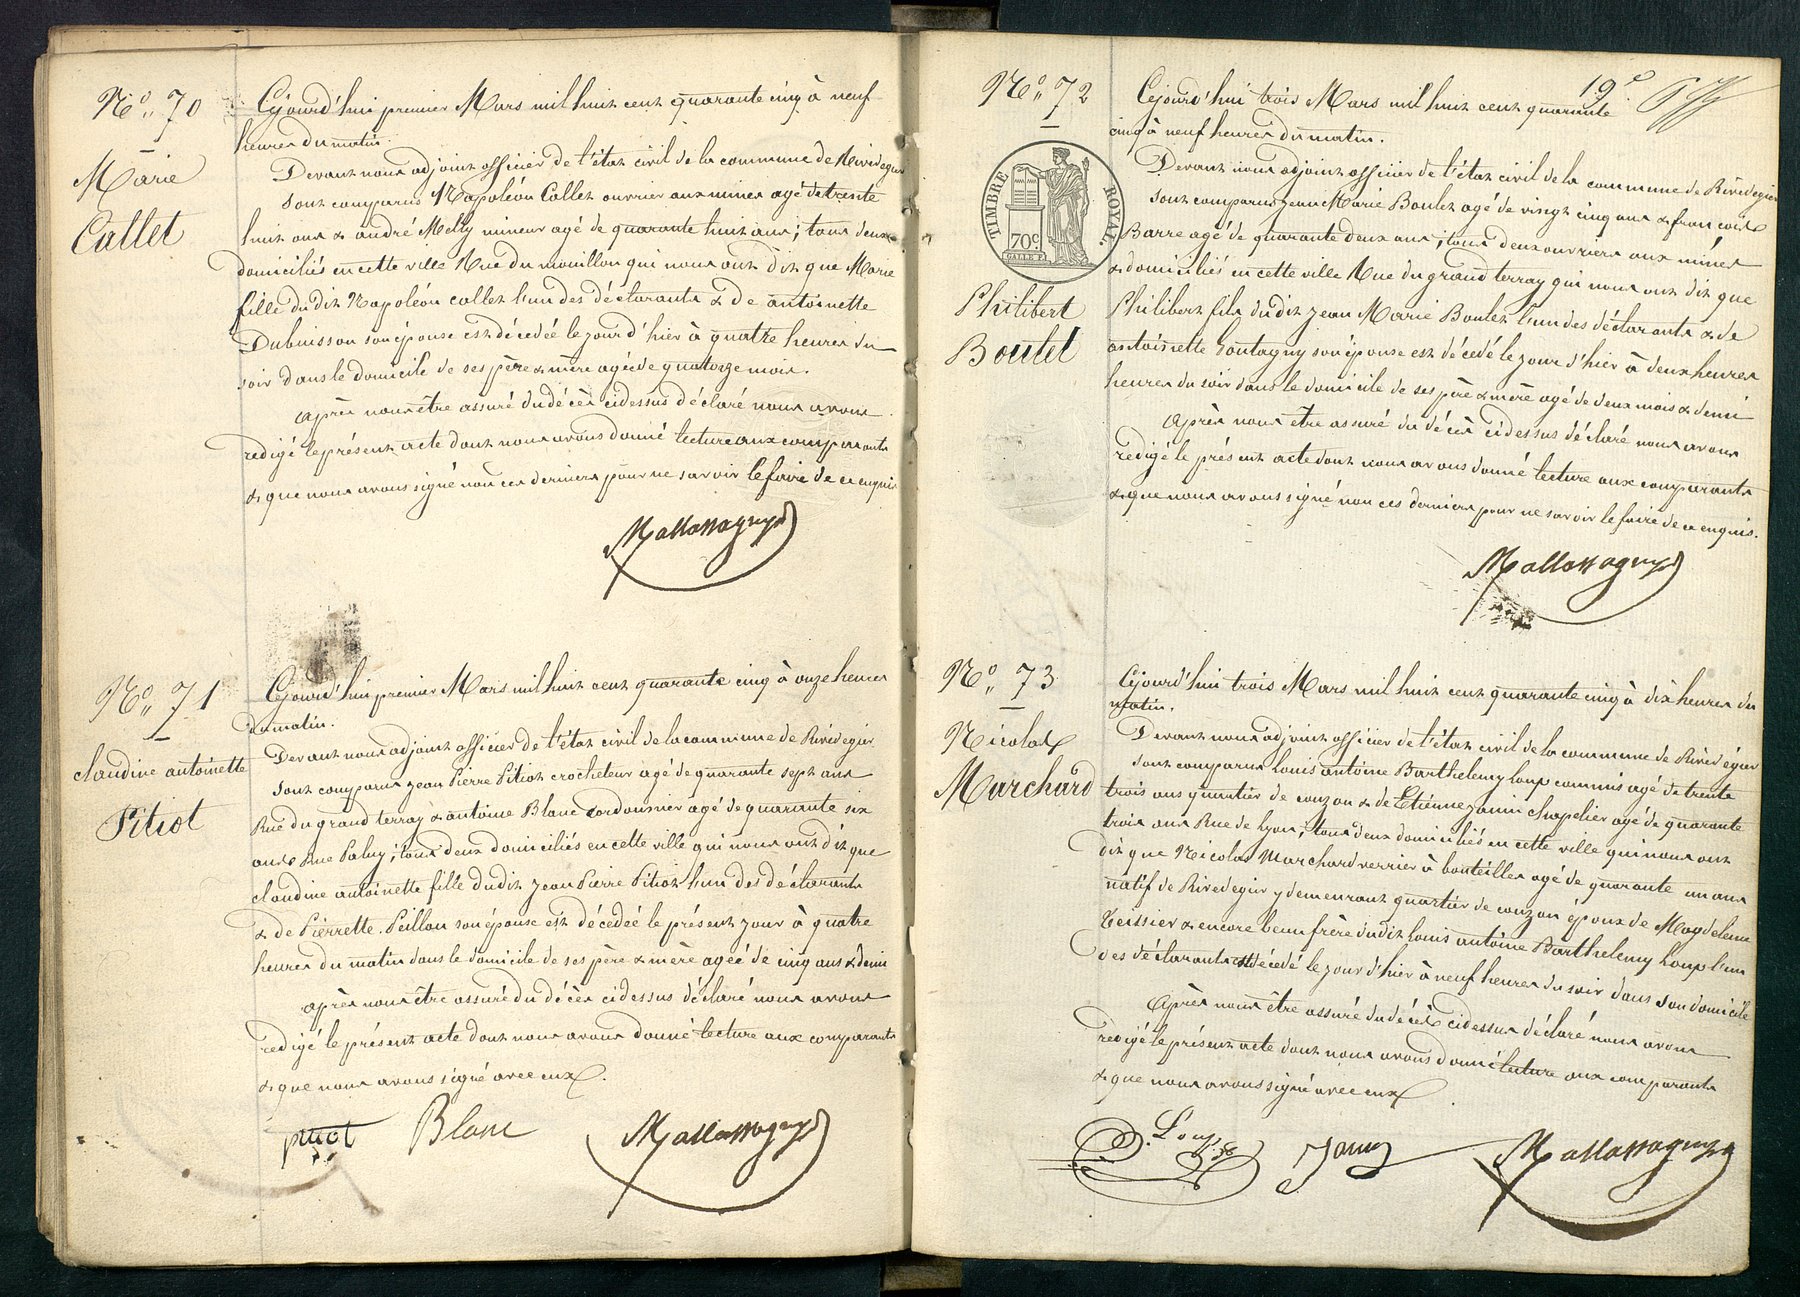 N° 70
Marie
Callet
Cejourd'hui premier Mars mil huit cent quarante cinq à neuf
heures du matin.
Devant nous adjoint officier de l'état civil de la commune de Rivedegier
sont comparus Napoléon Callet ouvrier aux mines agé de trente
huit ans & andré Melly mineur agé de quarante huit ans; tous deux
domiciliés en cette ville Rue du mouillon qui nous ont dit que Marie
fille dudit Napoléon callet l'un des déclarants & de antoinette
Dubuisson son épouse est décedée le jour d'hier à quatre heures du
soir dans le domicile de ses père & mère agée de quatorze mois.
après nous être assuré du décès cidessus déclaré nous avons
redigé le présent acte dont nous avons donné lecture aux comparants
& que nous avons signé non ces derniers pour ne savoir le faire de ce enquis
N° 71
claudine antoinette
Pitiot
Cejourd'hui premier Mars mil huit cent quarante cinq à onze heures
du matin.
Devant nous adjoint officier de l'état civil de la commune de Rivedegier
sont comparus jean Pierre Pitiot crocheteur agé de quarante sept ans
Rue du grand terray & antoine Blanc cordonnier agé de quarante six
ans Rue Paluy; tous deux domiciliés en cette ville qui nous ont dit que
claudine antoinette fille dudit jean Pierre Pitiot l'un des déclarants
& de Pierrette Peillon son épouse est décedée le présent jour à quatre
heures du matin dans le domicile de ses père & mère agée de cinq ans & demi
après nous être assuré du décès cidessus déclaré nous avons
redigé le présent acte dont nous avons donné lecture aux comparants
& que nous avons signé avec eux.
pitiot Blanc
19e
N° 72
TIMBRE ROYAL.
70c.
Philibert
Boulet
Cejourd'hui trois Mars mil huit cent quarante
cinq à neuf heures du matin.
Devant nous adjoint officier de l'état civil de la commune de Rivedegier
sont comparus jean Marie Boulet agé de vingt cinq ans & francois
Barre agé de quarante deux ans; tous deux ouvriers aux mines
& domiciliés en cette ville Rue du grand terray qui nous ont dit que
Philibert fils dudit jean Marie Boulet l'un des déclarants & de
antoinette Goutagny son épouse est décedé le jour d'hier à deux heures
heures du soir dans le domicile de ses père & mère agé de deux mois & demi
après nous être assuré du décès cidessus déclaré nous avons
redigé le présent acte dont nous avons donné lecture aux comparants
& que nous avons signé non ces derniers pour ne savoir le faire de ce enquis.
N° 73
Nicolas
Marchard
Cejourd'hui trois Mars mil huit cent quarante cinq à dix heures du
matin.
Devant nous adjoint officier de l'état civil de la commune de Rivedegier
sont comparus louis antoine Barthelemy Loup commis agé de trente
trois ans quartier de couzon & de Etienne janin chapelier agé de quarante
trois ans Rue de lyon; tous deux domiciliés en cette ville qui nous ont
dit que Nicolas Marchard verrier à bouteilles agé de quarante un ans
natif de Rivedegier y demeurant quartier de couzon époux de Magdeleine
Teissier & encore beau frère dudit louis antoine Barthelemy Loup l'un
des déclarants est décedé le jour d'hier à neuf heures du soir dans son domicile
Après nous être assuré du décès cidessus déclaré nous avons
redigé le présent acte dont nous avons donné lecture aux comparants
& que nous avons signé avec eux
Loup Janin